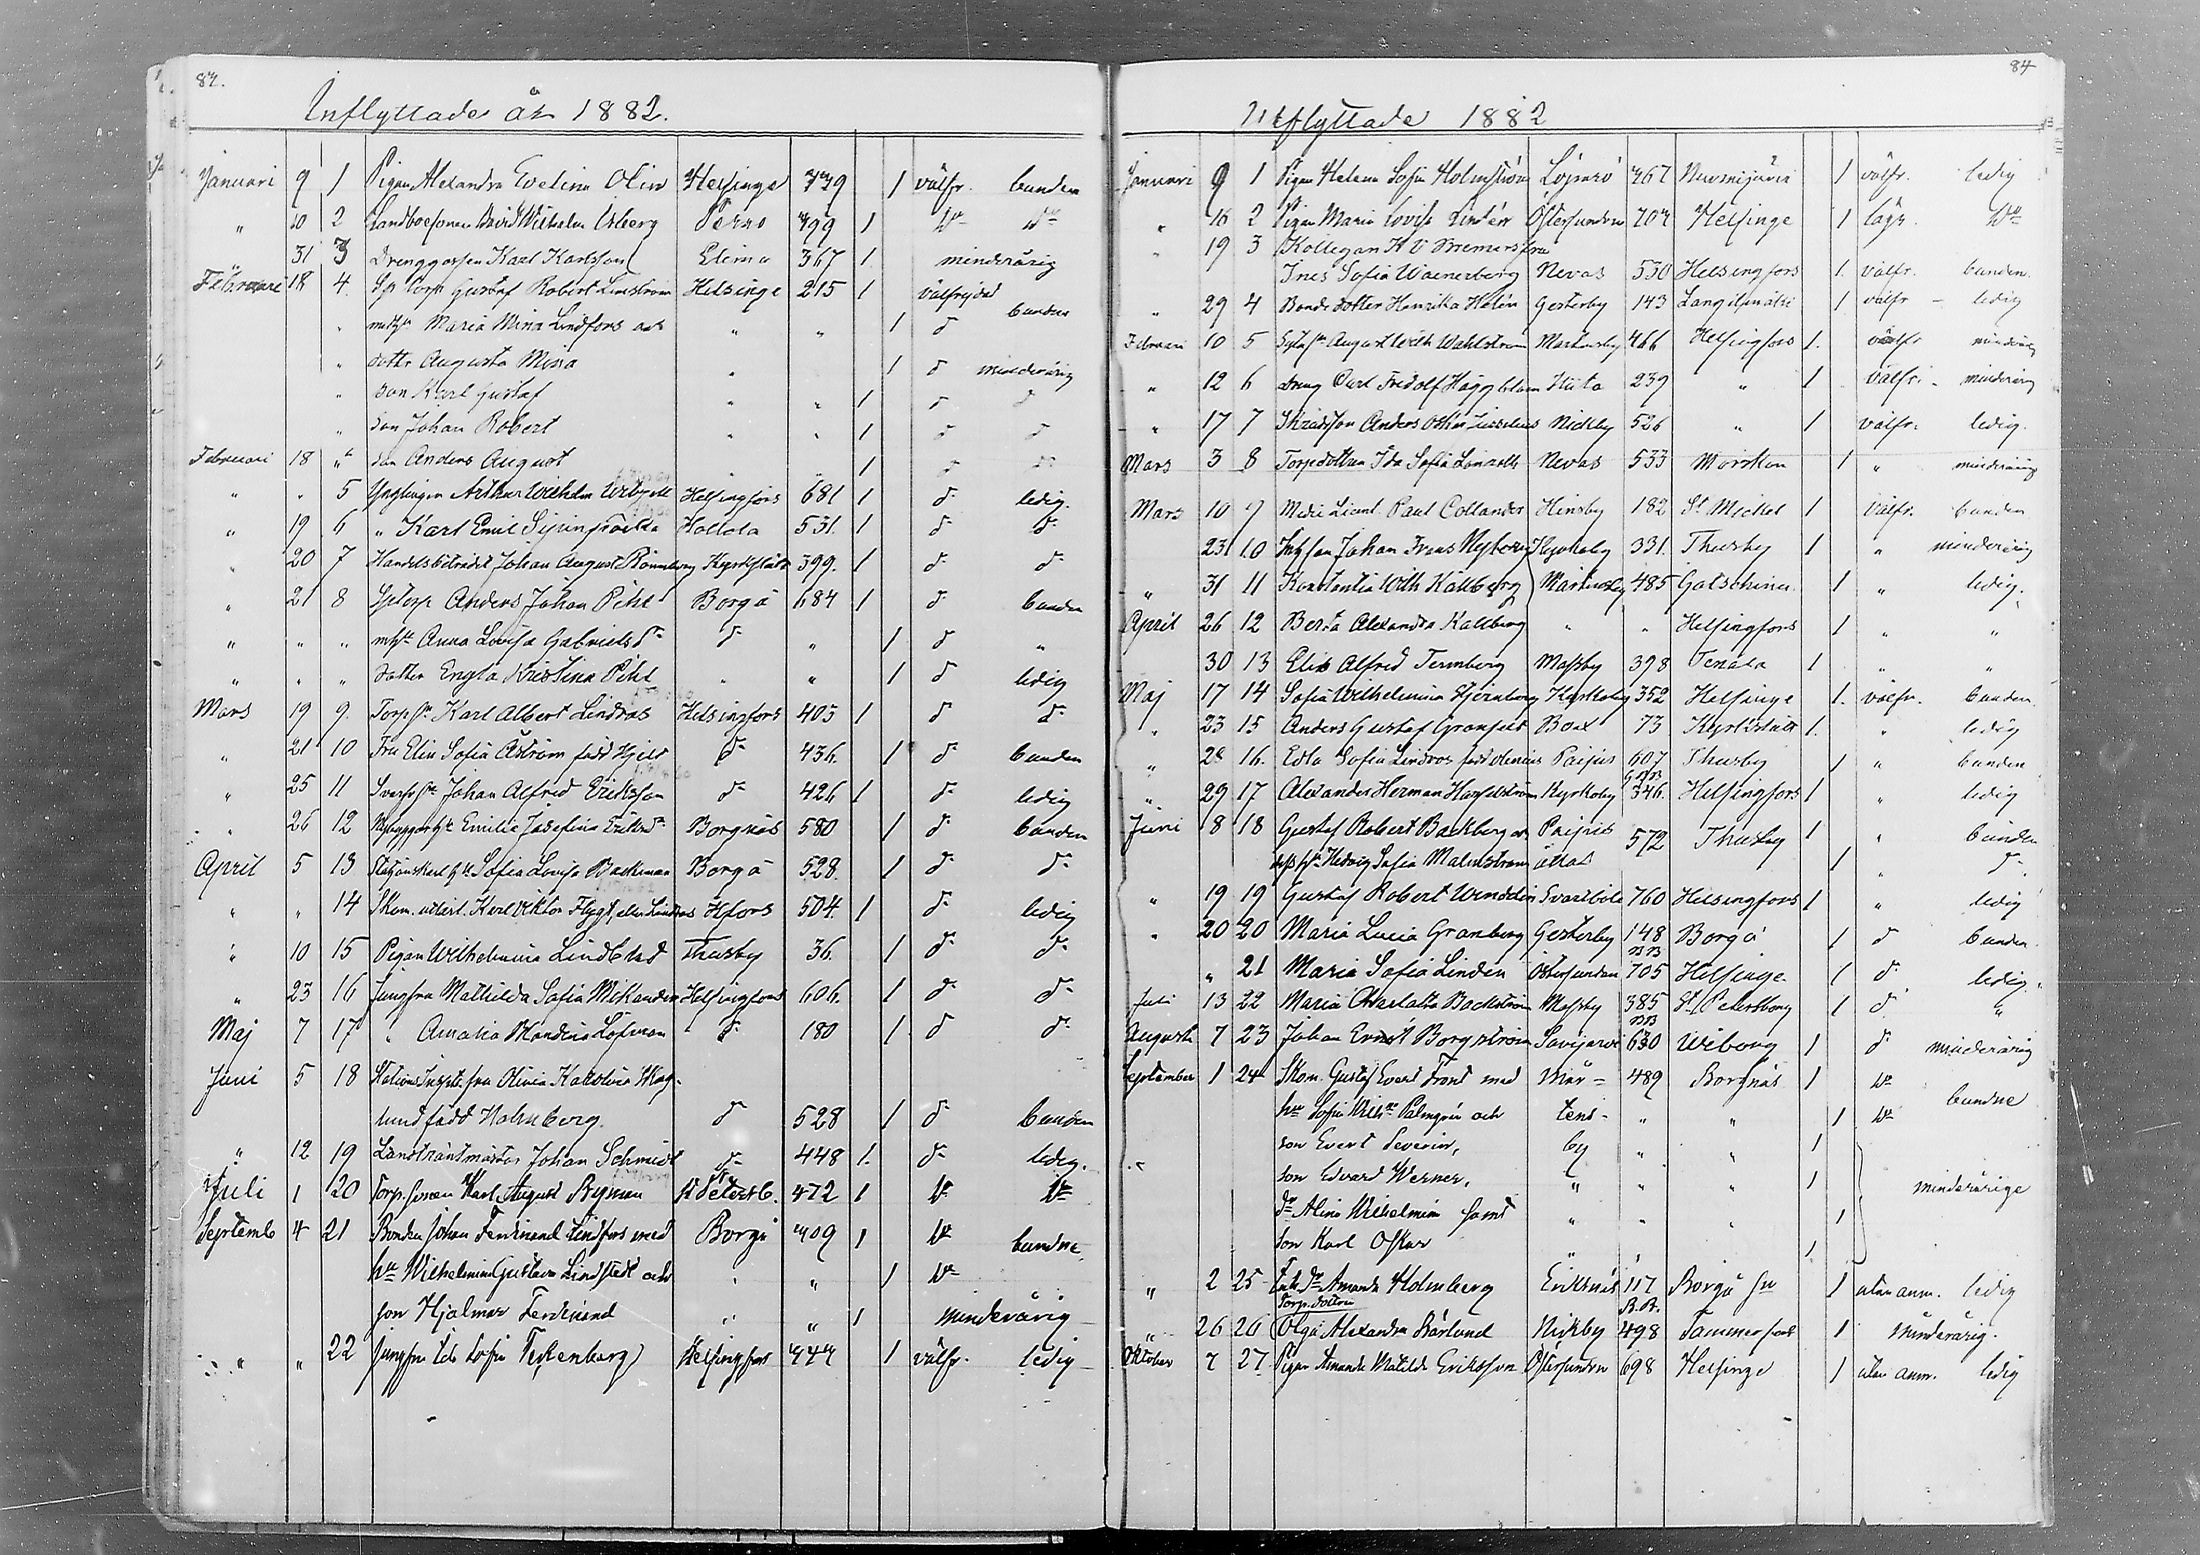 84.
Inflyttade år 1882.
Januari 9 1 Pigan Alexandra Evelina Olin Helsinge 739 1 välfr. bunden
" 10 2 Landbosonen David Wilhelm Perno 799 1 Do Do
" 31 3 Drenggossen Karl Karlsson Elimä 367 1 minderårig
Februari 18 4. Gustaf Robert Lindström Helsinge 215 1 välfrejdad
" Maria Mina Lindfors och " " 1 d bundne
" dottr Augusta Mina " 1 d minderårig
" son Karl Gustaf " " 1 d d
" son Johan Robert " " 1 d d
Februari 18 " son Anders August " " 1 d d
" " 5 Ynglingen Arthur Wilhelm Helsingfors 681 1 d ledig.
" 19 6 " Karl Emil Hollola 531. 1 d d
" 20 7 Handelsbiträdet Johan August Rönnberg Kyrkslätt 399. 1 d d
" 21 8 Anders Johan Pihl Borgå 684 1 d bunden
" " " Anna Lovisa Gabrielsdr d " 1 d "
" " " Dotter Engla Kristina Pihl " " 1 d ledig
Mars 19 9. Karl Albert Lindros Helsingfors 403 1 d d
" 21 10 Fru Elin Sofia Åström född Hjelt d 436. 1 d bunden
" 25 11 Johan Alfred Eriksson d 426 1 d ledig
" 26 12 Emilie Josefina Eriksdr Borgnäs 580 1 d bunden
April 5 13 Sofia Lovisa Backman Borgå 528. 1 d d
" " 14 Skom. Karl Viktor Flygt, eller Lindros Hfors 504. 1 d ledig
" 10 15 Pigan Wilhelmina Lindblad Thusby 36. 1 d d
" 23 16 Jungfru Mathilda Sofia Wikander Helsingfors 606. 1 d d
Maj 7 17 " Amalia Mandina Löfman d 180 1 d d
Juni 5 18 Stations Insp. fru Olivia Karolina
lund född Holmberg. d 528 1 d bunden
" 12 19 Landträntmästar Johan Schmidt d 448 1. d ledig.
Juli 1 20 Torp.sonen Karl August Ryman St Petersb. 472 1 Do Do
Septemb 4 21 Bonden Johan Ferdinand Lindfors med Borgå 709 1 Do bundne
hu Wilhelmina Gustava Lindstedt och " " 1 Do
son Hjalmar Ferdinand " " 1 minderårig
" " 22 Jungfru Ida Sofia Teckenberg Helsingfors 747 1 välfr. ledig
84
Utflyttade 1882
Januari 9 1 Pigan Helena Sofia Holmström Löparö 767 Nurmijärvi 1 välfr. ledig
" 16 2 Pigan Maria Lovisa Lindén Östersundom 707 Helsinge 1 Do
" 19 3 Kollegan K V Bremers fru
Ines Sofia Waenerberg Nevas 530 Helsingfors 1. välfr. bunden.
" 29 4 Bonde dotter Henrika Helén Gesterby 143 Langinmäki 1 välfr ledig
Februari 10 5 August Wilh Wahlström Martensby 466 Helsingfors 1. välfr minderårig
" 12 6 Dreng Carl Fredolf Häggblom Hista 239 " 1 välfr. minderårig
" 17 7 Anders Oskar Nickby 526 " 1 välfr. ledig.
Mars 3 8 Torpdottren Ida Sofia Nevas 533 Mörskom 1 " minderårig
Mars 10 9 Medic Licent. Paul Collander Hinsby 182 St Michel 1 välfr. bunden
23 10 Johan Frans Nyberg Kyrkoby 331. Thusby 1 " minderårig
" 31 11 Konstantia Wilh Källberg Martensby 485 Gatschina 1 " ledig.
April 26 12 Berta Alexandra Källberg " " Helsingfors 1 " "
30 13 Elis Alfred Ternberg Massby 398 Tenala 1 " "
Maj 17 14 Sofia Wilhelmina Stjernberg Kyrkoby 352 Helsinge 1. välfr. bunden.
" 23 15 Anders Gustaf Granqvist Box 73 Kyrkslätt 1. " ledig
" 28 16. Edla Sofia Lindros född Olenius Paipis 607 Thusby 1 " bunden
" 29 17 Alexander Herman Hasselström Kyrkoby 346. Helsingfors 1 " ledig
Juni 8 18 Gustaf Robert Backberg och Paipis 572 Thusby 1 " bunden
Hedvig Sofia Malmström 1 " d
" 19 19 Gustaf Robert Wendelin Svartböle 760 Helsingfors 1 " ledig
" 20 20 Maria Lucia Granberg Gesterby 148 Borgå 1 d bunden.
" 21 Maria Sofia Linden Östersundom 705 Helsinge 1 d ledig.
Juli 13 22 Maria Charlotta Backström Massby 385 St Petersborg 1 d "
Augusti 7 23 Johan Ernst Borgström Savijärvi 630 Wiborg 1 d minderårig
September 1 24 Skom. Gustaf Evert Frond med Mår= 489 Borgnäs 1 Do
hu Sofia Wilhna Palmgren och tens- " " 1 Do bundne
son Evert Severin, by " " 1
son Edvard Werner, " " " 1 minderårige
dr Alina Wilhelmina samt " " " 1
son Karl Oskar " " 1
" 2 25 Amanda Holmberg Eriksnäs 117 Borgå sn 1 utan anm. ledig
Torp.dottren
" 26 26 Olga Alexandra Bärlund Nickby 498 Tammerfors 1 minderårig.
Oktober 7 27 Pigan Amanda Matilda Eriksson Östersundom 698 Helsinge 1 utan anm. ledig